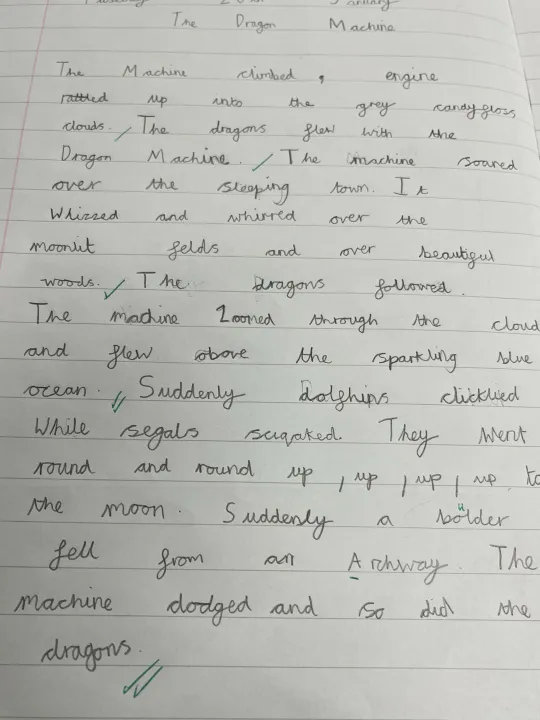 January
The Dragon Machine
The Machine climbed, engine
rattled up into the grey candyfloss
clouds. The dragons flew with the
Dragon Machine. The machine soared
over the sleeping town. It
Whizzed and whirred over the
moonlit felds and over beautiful
woods. The dragons followed.
The machine Zoomed through the cloud
and flew above the sparkling blue
ocean. Suddenly dolphins clicklied
While segals squaked. They Went
round and round up, up, up, up to
the moon. Suddenly a boulder
fell from an Archway. The
machine dodged and so did the
dragons.